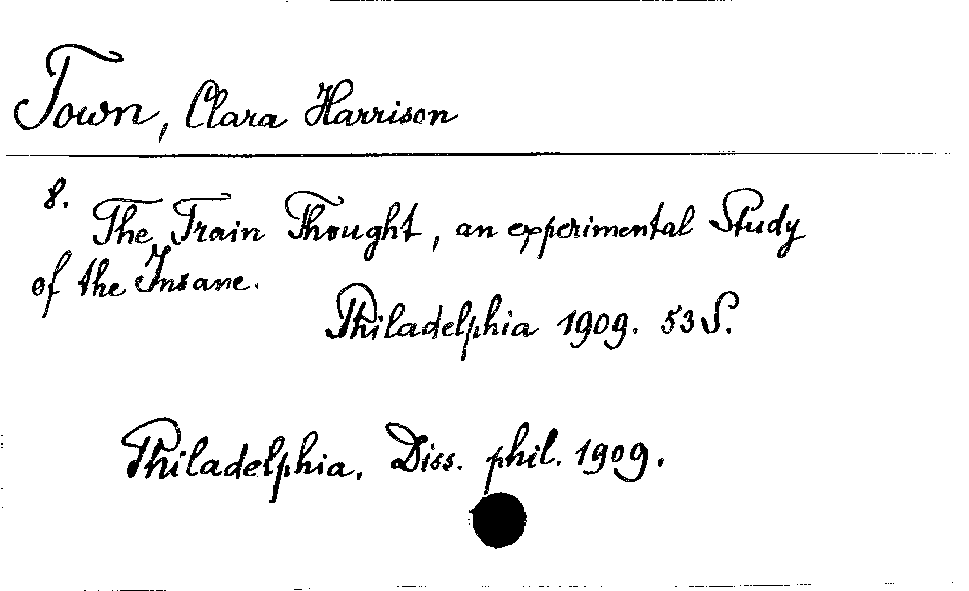 Town, Clara Harrison
8.
The Train Thought, an experimental Study
of the Insane.
Philadelphia 1909. 53 S.
Philadelphia, Diss. phil. 1909.